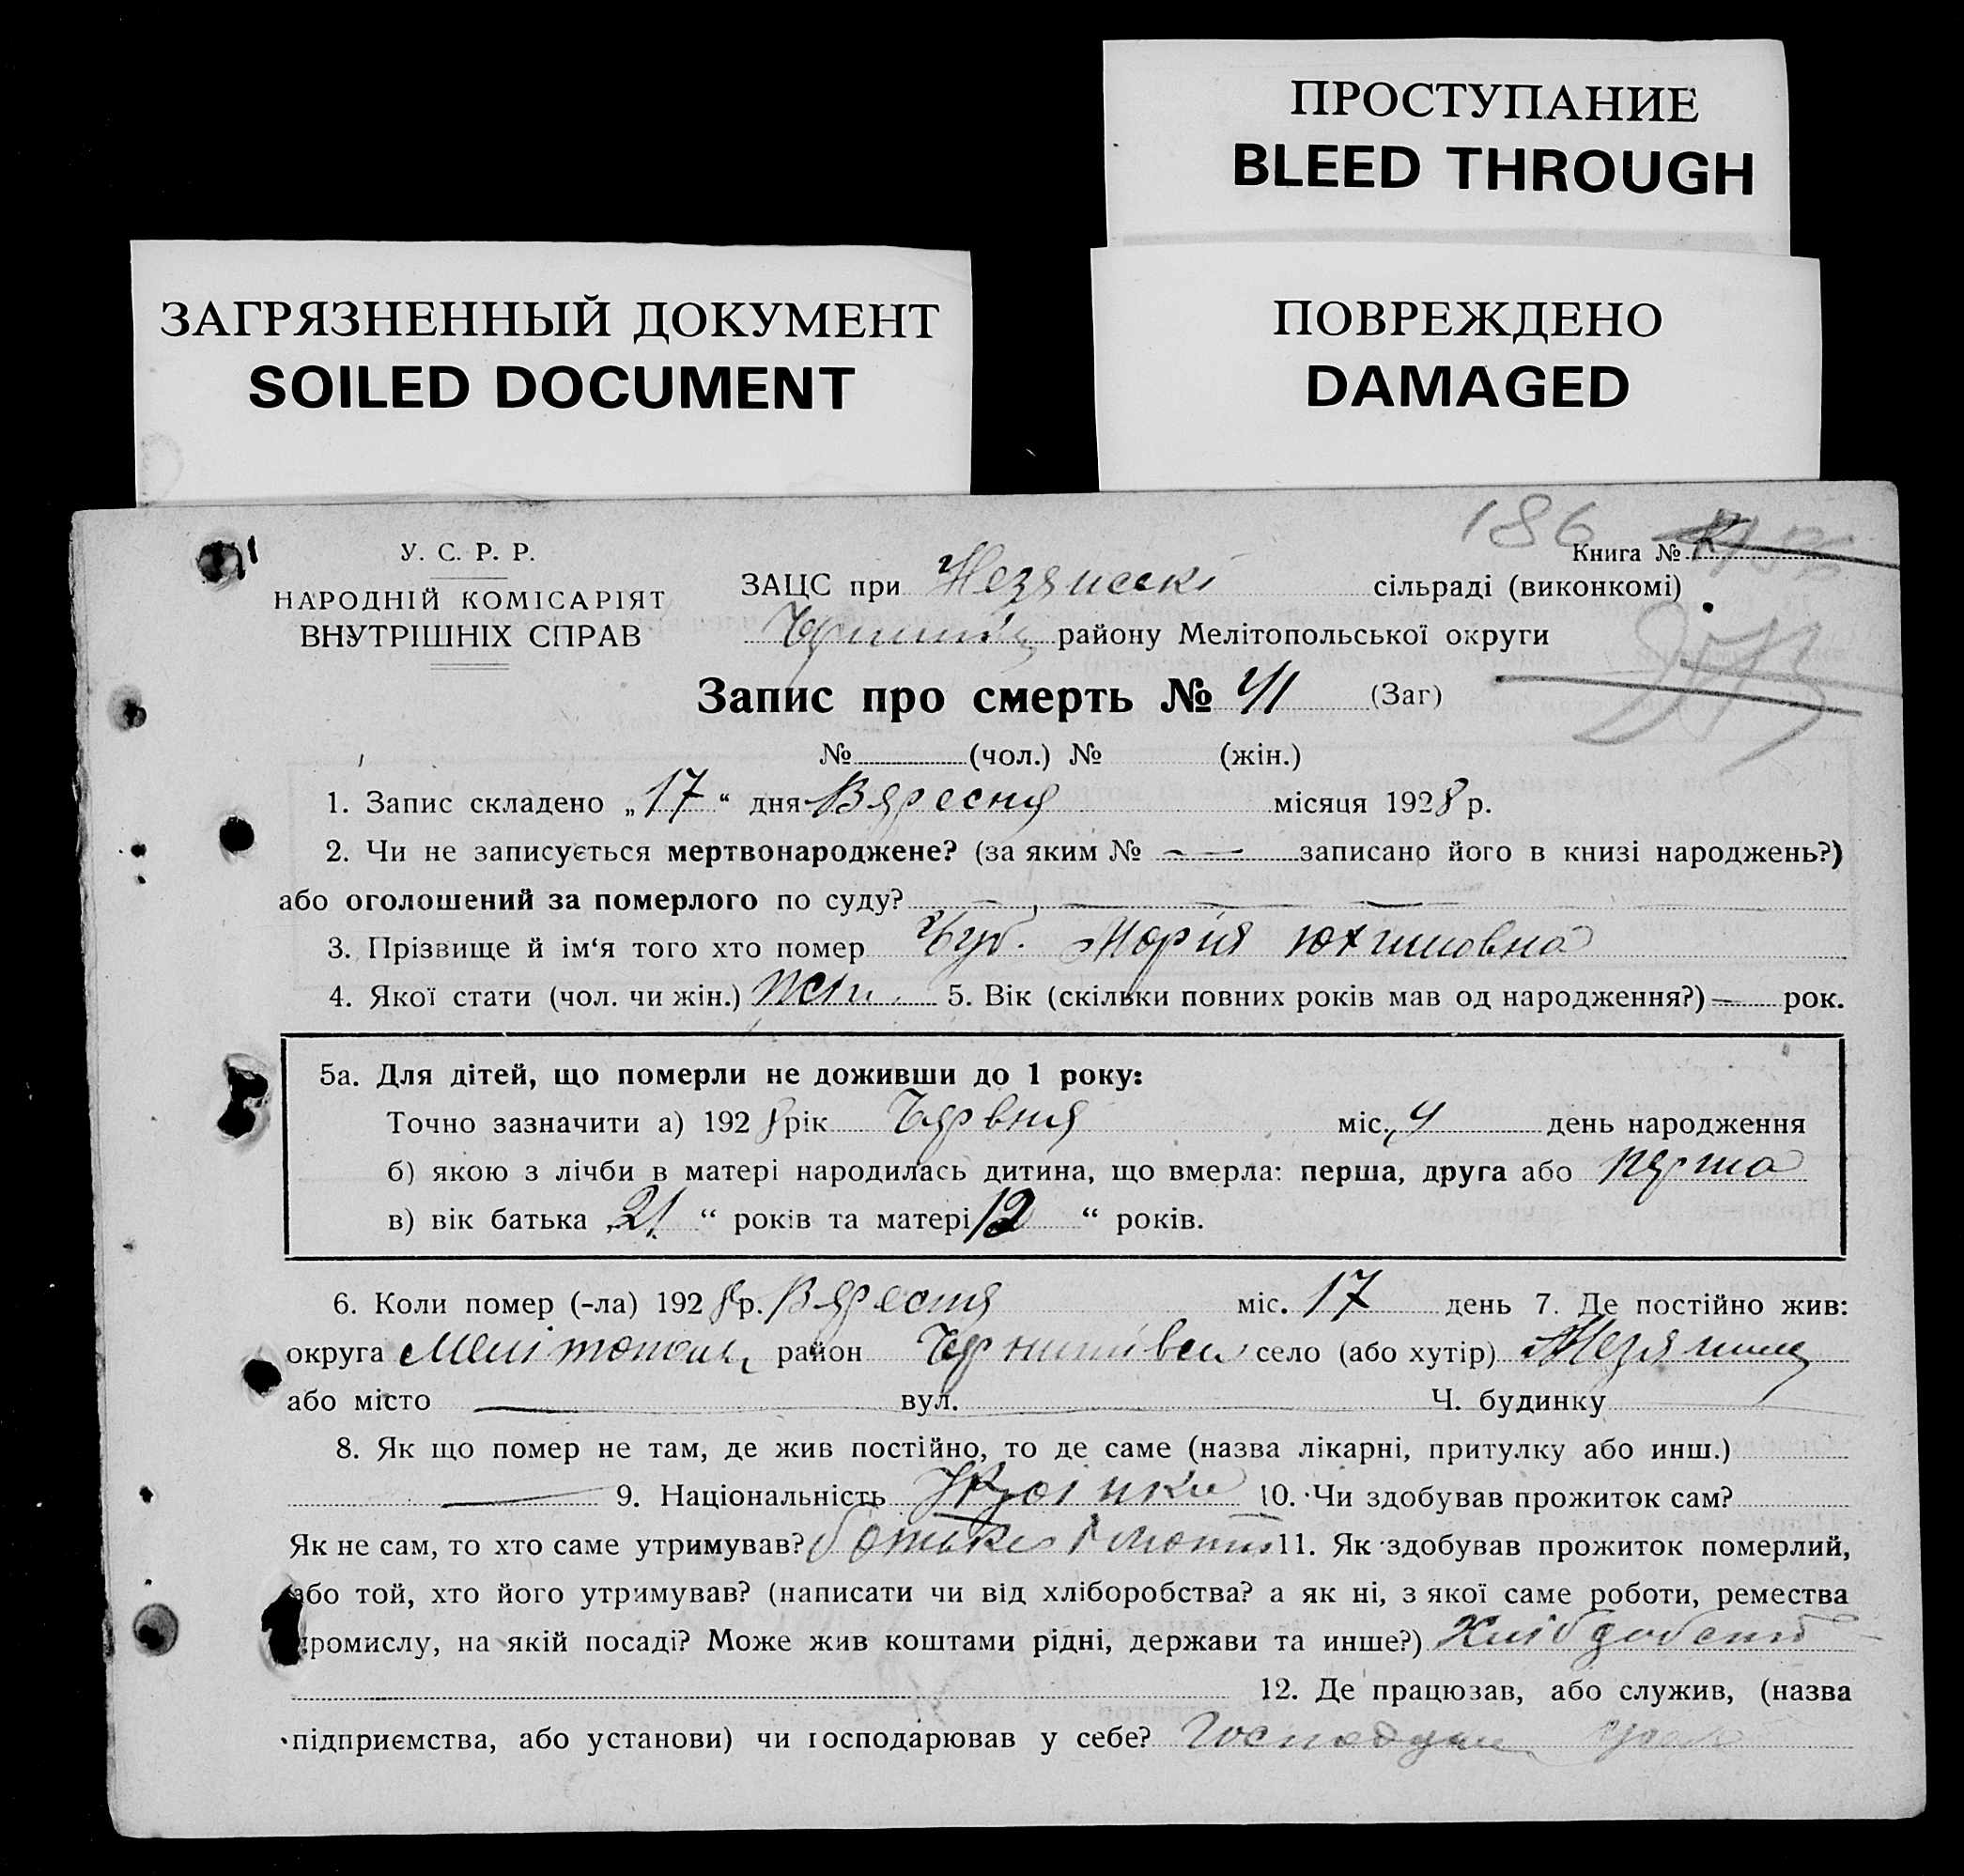 ПРОСТУПАНИЕ
BLEED THROUGH
ЗАГРЯЗНЕННЫЙ ДОКУМЕНТ
SOILED DOCUMENT
ПОВРЕЖДЕНО
DAMAGED
186
У. С. Р. Р.
НАРОДНІЙ КОМІСАРІЯТ
ВНУТРІШНІХ СПРАВ
Книга №
ЗАЦС при сільраді (виконкомі)
району Мелітопольської округи
Запис про смерть № 41 (Заг)
№ (чол.) № (жін.)
1. Запис складено „17“ дня Вересня місяця 1928 р.
2. Чи не записується мертвонароджене? (за яким № — записано його в книзі народжень?)
або оголошений за померлого по суду? — — —
3. Прізвище й ім‘я того хто помер Чуб. Марія Юхимовна
4. Якої стати (чол. чи жін.) жін. 5. Вік (скільки повних років мав од народження?) — рок.
5а. Для дітей, що померли не доживши до 1 року:
Точно зазначити а) 1928 рік Червня міс. 4 день народження
б) якою з лічби в матері народилась дитина, що вмерла: перша, друга або перша
в) вік батька „21“ років та матері “ років.
6. Коли помер (-ла) 1928 р. Вересня міс. 17 день 7. Де постійно жив:
округа Меліtопол район Чернигівськ село (або хутір)
або місто — вул. Ч. будинку
8. Як що помер не там, де жив постійно, то де саме (назва лікарні, притулку або инш.)
— 9. Національність 10. Чи здобував прожиток сам?
Як не сам, то хто саме утримував? батько і мати 11. Як здобував прожиток померлий,
або той, хто його утримував? (написати чи від хліборобства? а як ні, з якої саме роботи, ремества
промислу, на якій посаді? Може жив коштами рідні, держави та инше?)
12. Де працюзав, або служив, (назва
підприємства, або установи) чи господарював у себе?